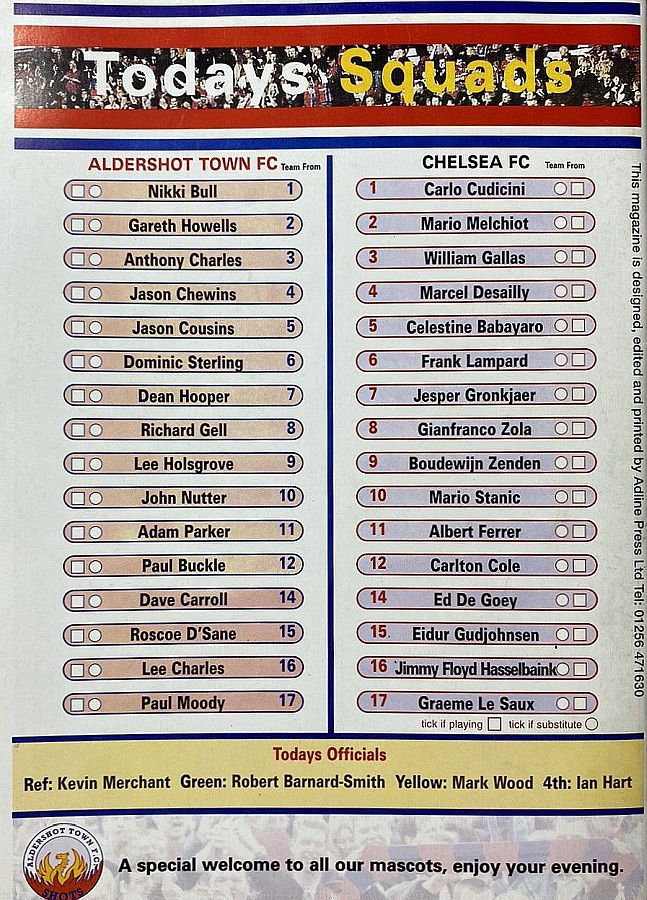 Todays Squads
ALDERSHOT TOWN FC Team From
Nikki Bull 1
Gareth Howells 2
Anthony Charles 3
Jason Chewins 4
Jason Cousins 5
Dominic Sterling 6
Dean Hooper 7
Richard Gell 8
Lee Holsgrove 9
John Nutter 10
Adam Parker 11
Paul Buckle 12
Dave Carroll 14
Roscoe D'Sane 15
Lee Charles 16
Paul Moody 17
CHELSEA FC Team From
1 Carlo Cudicini
2 Mario Melchiot
3 William Gallas
4 Marcel Desailly
5 Celestine Babayaro
6 Frank Lampard
7 Jesper Gronkjaer
8 Gianfranco Zola
9 Boudewijn Zenden
10 Mario Stanic
11 Albert Ferrer
12 Carlton Cole
14 Ed De Goey
15 Eidur Gudjohnsen
16 Jimmy Floyd Hasselbaink
17 Graeme Le Saux
tick if playing tick if substitute
This magazine is designed, edited and printed by Adline Press Ltd Tel: 01256 471630
Todays Officials
Ref: Kevin Merchant Green: Robert Barnard-Smith Yellow: Mark Wood 4th: Ian Hart
ALDERSHOT TOWN F.C.
SHOTS
A special welcome to all our mascots, enjoy your evening.